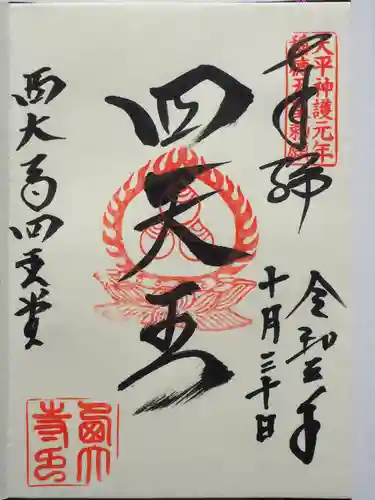 奉拝
天平神護元年
稱徳天皇勅願
令和三年
十月三十日
四天王
西大寺四王堂
西大寺印